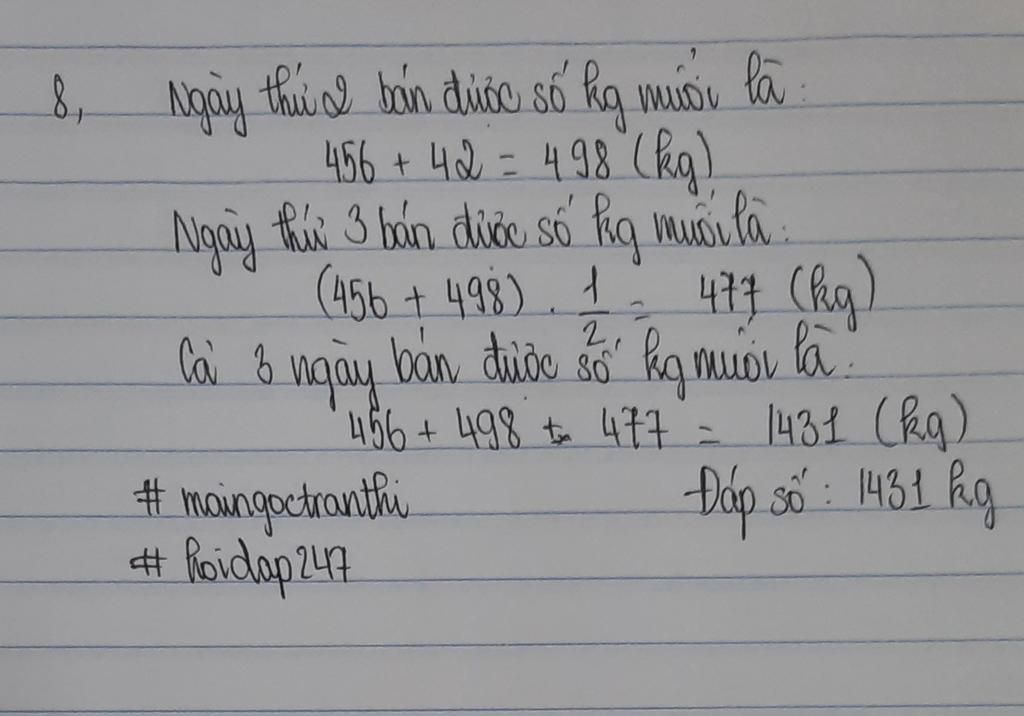 8, Ngày thứ 2 bán được số kg muối là:
456 + 42 = 498 (kg)
Ngày thứ 3 bán được số kg muối là:
(456 + 498) . 1/2 = 477 (kg)
Cả 3 ngày bán được số kg muối là:
456 + 498 + 477 = 1431 (kg)
# maingoctranthi Đáp số : 1431 kg
# hoidap247